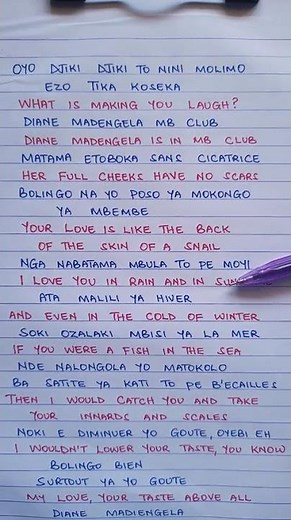 OYO DJIKI DJIKI TO NINI MOLIMO
EZO TIKA KOSEKA
WHAT IS MAKING YOU LAUGH?
DIANE MADENGELA MB CLUB
DIANE MADENGELA IS IN MB CLUB
MATAMA ETOBOKA SANS CICATRICE
HER FULL CHEEKS HAVE NO SCARS
BOLINGO NA YO POSO YA MOKONGO
YA MBEMBE
YOUR LOVE IS LIKE THE BACK
OF THE SKIN OF A SNAIL
NGA NABATAMA MBULA TO PE MOYI
I LOVE YOU IN RAIN AND IN
ATA MALILI YA HIVER
AND EVEN IN THE COLD OF WINTER
SOKI OZALAKI MBISI YA LA MER
IF YOU WERE A FISH IN THE SEA
NDE NALONGOLA YO MATOKOLO
BA SATITE YA KATI TO PE B'ECAILLES
THEN I WOULD CATCH YOU AND TAKE
YOUR INNARDS AND SCALES
NOKI E DIMINUER YO GOUTE, OYEBI EH
I WOULDN'T LOWER YOUR TASTE, YOU KNOW
BOLINGO BIEN
SURTOUT YA YO GOUTE
MY LOVE, YOUR TASTE ABOVE ALL
DIANE MADIENGELA